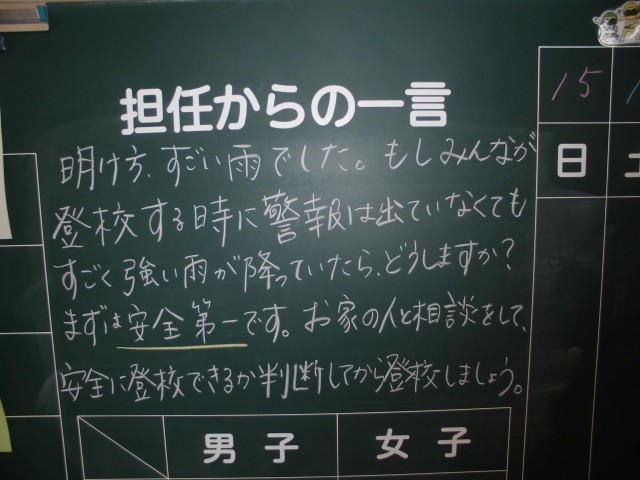 担任からの一言
明け方、すごい雨でした。もしみんなが
登校する時に警報は出ていなくても
すごく強い雨が降っていたら、どうしますか?
まずは安全第一です。お家の人と相談をして、
安全に登校できるか判断してから登校しましょう。
15
日
男子
女子